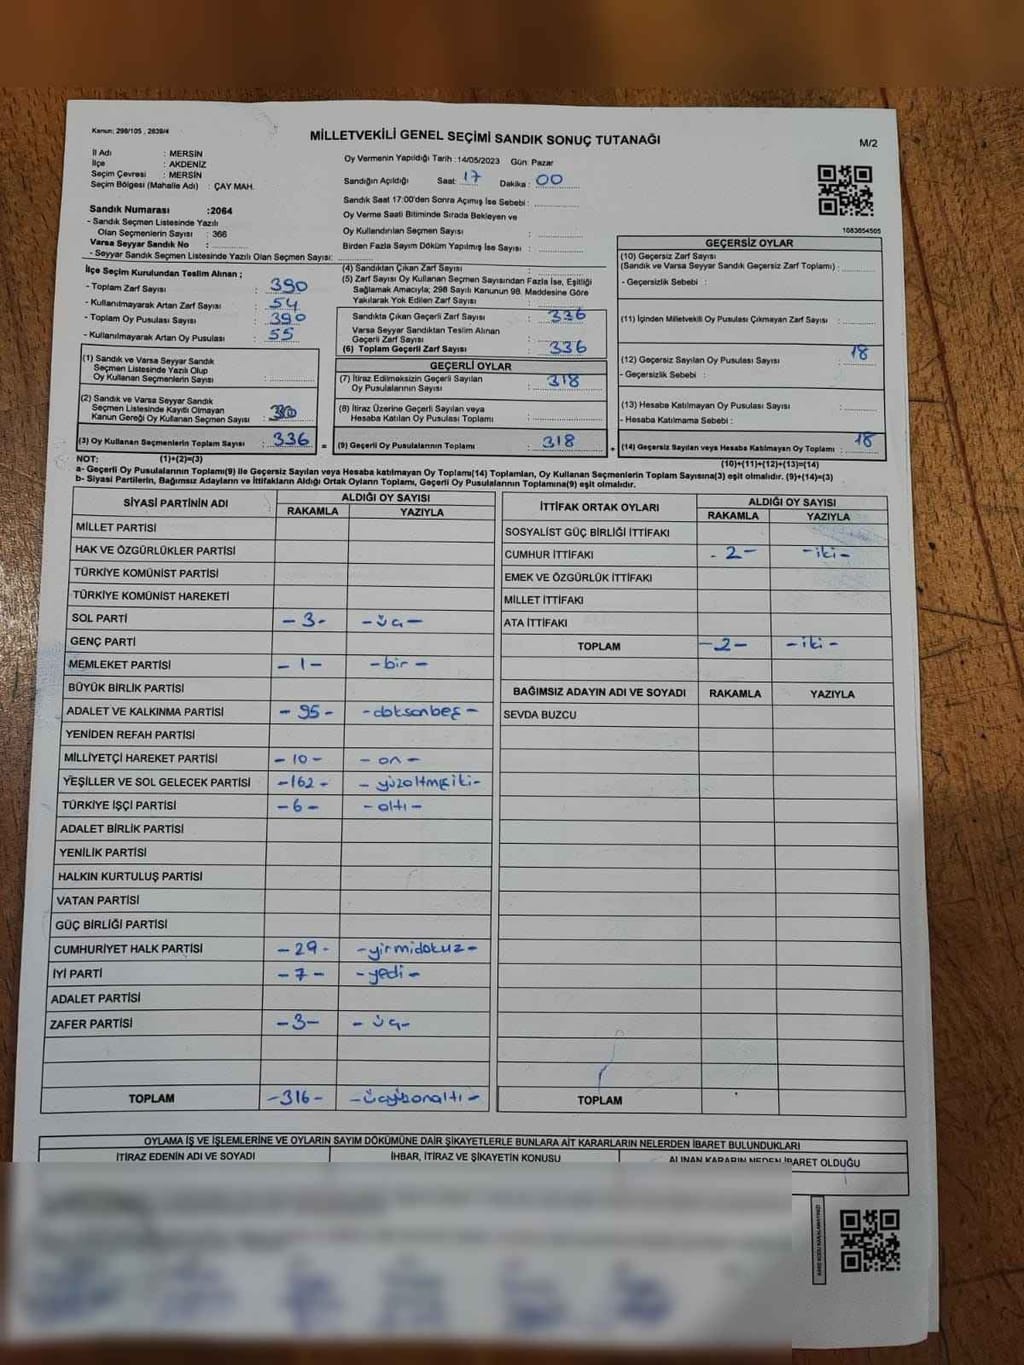 Kanun; 298/105 , 2839/4
MİLLETVEKİLİ GENEL SEÇİMİ SANDIK SONUÇ TUTANAĞI
M/2
İl Adı : MERSİN
İlçe : AKDENİZ
Seçim Çevresi : MERSİN
Seçim Bölgesi (Mahalle Adı) : ÇAY MAH.
Oy Vermenin Yapıldığı Tarih :14/05/2023 Gün: Pazar
Sandığın Açıldığı Saat: 17 Dakika : 00
Sandık Saat 17:00'den Sonra Açımış İse Sebebi :
Oy Verme Saati Bitiminde Sırada Bekleyen ve
Oy Kullandırılan Seçmen Sayısı :
Birden Fazla Sayım Döküm Yapılmış İse Sayısı :
1083054505
Sandık Numarası :2064
- Sandık Seçmen Listesinde Yazılı
Olan Seçmenlerin Sayısı : 366
Varsa Seyyar Sandık No :
- Seyyar Sandık Seçmen Listesinde Yazılı Olan Seçmen Sayısı:
İlçe Seçim Kurulundan Teslim Alınan ;
- Toplam Zarf Sayısı : 390
- Kullanılmayarak Artan Zarf Sayısı : 54
- Toplam Oy Pusulası Sayısı : 390
- Kullanılmayarak Artan Oy Pusulası : 55
(1) Sandık ve Varsa Seyyar Sandık
Seçmen Listesinde Yazılı Olup
Oy Kullanan Seçmenlerin Sayısı :
(2) Sandık ve Varsa Seyyar Sandık
Seçmen Listesinde Kayıtlı Olmayan
Kanun Gereği Oy Kullanan Seçmen Sayısı :
(3) Oy Kullanan Seçmenlerin Toplam Sayısı : 336 =
(4) Sandıktan Çıkan Zarf Sayısı :
(5) Zarf Sayısı Oy Kullanan Seçmen Sayısından Fazla İse, Eşitliği
Sağlamak Amacıyla; 298 Sayılı Kanunun 98. Maddesine Göre
Yakılarak Yok Edilen Zarf Sayısı :
Sandıkta Çıkan Geçerli Zarf Sayısı : 336
Varsa Seyyar Sandıktan Teslim Alınan
Geçerli Zarf Sayısı :
(6) Toplam Geçerli Zarf Sayısı : 336
GEÇERLİ OYLAR
(7) İtiraz Edilmeksizin Geçerli Sayılan
Oy Pusulalarının Sayısı : 318
(8) İtiraz Üzerine Geçerli Sayılan veya
Hesaba Katılan Oy Pusulası Toplamı :
(9) Geçerli Oy Pusulalarının Toplamı : 318 +
GEÇERSİZ OYLAR
(10) Geçersiz Zarf Sayısı
(Sandık ve Varsa Seyyar Sandık Geçersiz Zarf Toplamı) :
- Geçersizlik Sebebi :
(11) İçinden Milletvekili Oy Pusulası Çıkmayan Zarf Sayısı :
(12) Geçersiz Sayılan Oy Pusulası Sayısı : 18
- Geçersizlik Sebebi :
(13) Hesaba Katılmayan Oy Pusulası Sayısı :
- Hesaba Katılmama Sebebi :
(14) Geçersiz Sayılan veya Hesaba Katılmayan Oy Toplamı : 18
NOT: (1)+(2)=(3)
(10)+(11)+(12)+(13)=(14)
a- Geçerli Oy Pusulalarının Toplamı(9) ile Geçersiz Sayılan veya Hesaba katılmayan Oy Toplamı(14) Toplamları, Oy Kullanan Seçmenlerin Toplam Sayısına(3) eşit olmalıdır. (9)+(14)=(3)
b- Siyasi Partilerin, Bağımsız Adayların ve İttifakların Aldığı Ortak Oyların Toplamı, Geçerli Oy Pusulalarının Toplamına(9) eşit olmalıdır.
SİYASİ PARTİNİN ADI ALDIĞI OY SAYISI
RAKAMLA YAZIYLA
MİLLET PARTİSİ
HAK VE ÖZGÜRLÜKLER PARTİSİ
TÜRKİYE KOMÜNİST PARTİSİ
TÜRKİYE KOMÜNİST HAREKETİ
SOL PARTİ -3- -üç-
GENÇ PARTİ
MEMLEKET PARTİSİ -1- -bir-
BÜYÜK BİRLİK PARTİSİ
ADALET VE KALKINMA PARTİSİ -95- -doksanbeş-
YENİDEN REFAH PARTİSİ
MİLLİYETÇİ HAREKET PARTİSİ -10- -on-
YEŞİLLER VE SOL GELECEK PARTİSİ -162- -yüzaltmışiki-
TÜRKİYE İŞÇİ PARTİSİ -6- -altı-
ADALET BİRLİK PARTİSİ
YENİLİK PARTİSİ
HALKIN KURTULUŞ PARTİSİ
VATAN PARTİSİ
GÜÇ BİRLİĞİ PARTİSİ
CUMHURİYET HALK PARTİSİ -29- -yirmidokuz-
İYİ PARTİ -7- -yedi-
ADALET PARTİSİ
ZAFER PARTİSİ -3- -üç-
TOPLAM -316- -üçyüzonaltı-
İTTİFAK ORTAK OYLARI ALDIĞI OY SAYISI
RAKAMLA YAZIYLA
SOSYALİST GÜÇ BİRLİĞİ İTTİFAKI
CUMHUR İTTİFAKI -2- -iki-
EMEK VE ÖZGÜRLÜK İTTİFAKI
MİLLET İTTİFAKI
ATA İTTİFAKI
TOPLAM -2- -iki-
BAĞIMSIZ ADAYIN ADI VE SOYADI RAKAMLA YAZIYLA
SEVDA BUZCU
TOPLAM
OYLAMA İŞ VE İŞLEMLERİNE VE OYLARIN SAYIM DÖKÜMÜNE DAİR ŞİKAYETLERLE BUNLARA AİT KARARLARIN NELERDEN İBARET BULUNDUKLARI
İTİRAZ EDENİN ADI VE SOYADI İHBAR, İTİRAZ VE ŞİKAYETİN KONUSU ALINAN KARARIN NEDEN İBARET OLDUĞU